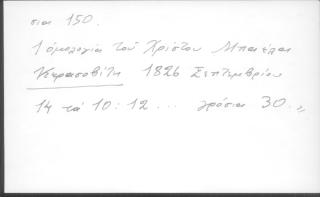 σια 150.
1 ὁμολογία τοῦ Χρίστου Μπαέλα
Κερασοβίτη 1826 Σεπτεμβρίου
14 τά 10:12 ... γρόσια 30..,